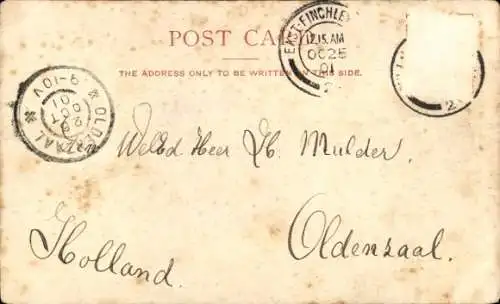 POST CARD
THE ADDRESS ONLY TO BE WRITTEN ON THIS SIDE.
EAST-FINCHLEY
12.15.AM
OC 25
01
2
OLDENZAAL
9-10V
OCT
01
Heer H. Mulder.
Oldenzaal.
Holland.